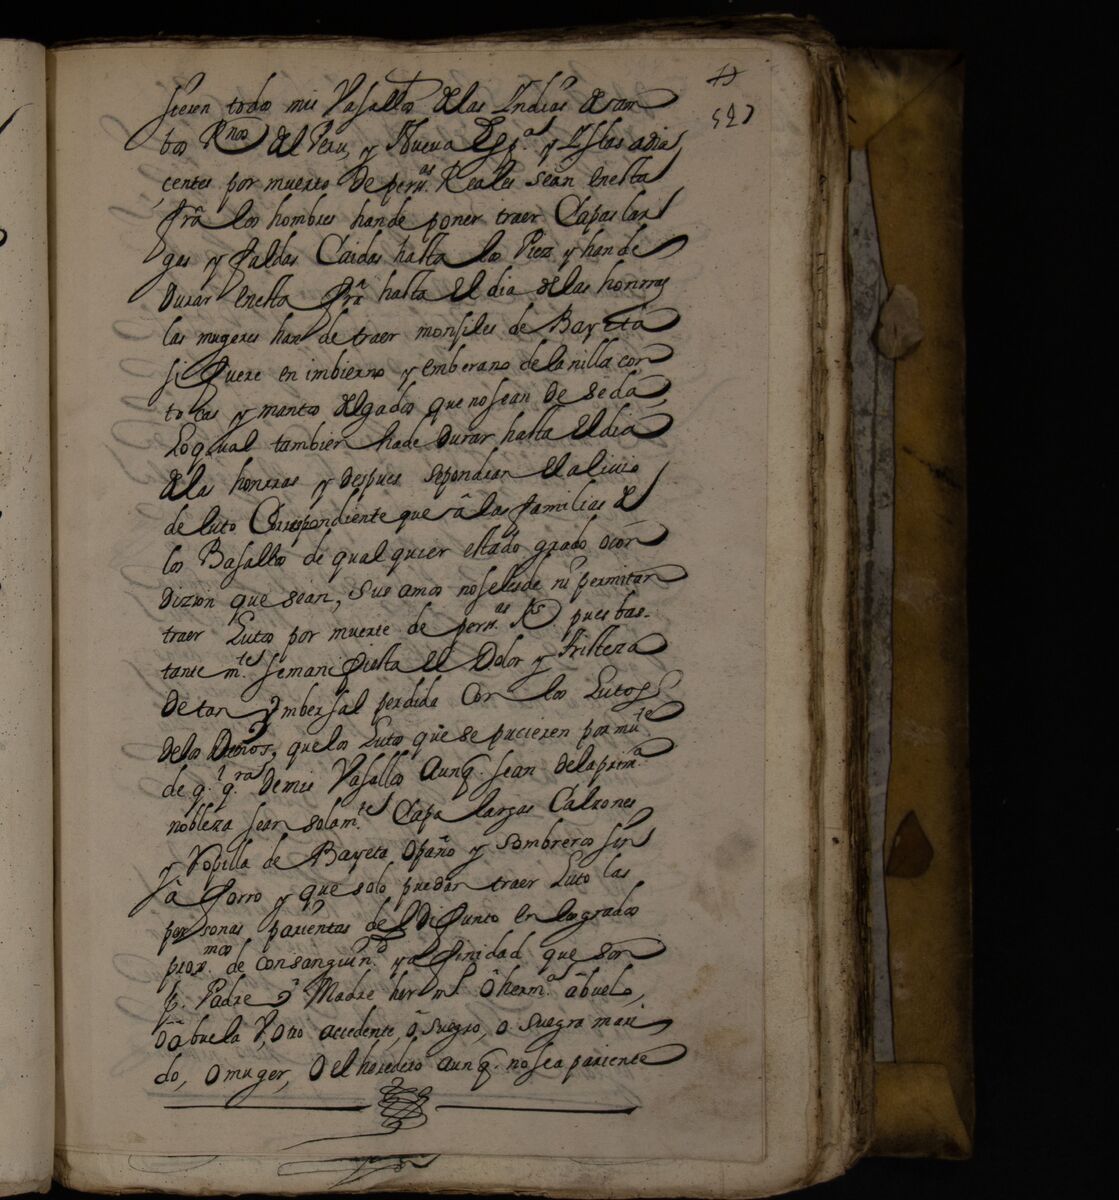 sieren todos mis Vasallos de las Indias de am
bos Rnos del Peru, y Nueva Espa. y Islas adia
centes por muerte de perss. Reales sean en esta
frã los hombres han de poner traer Capas lar
gas y faldas Caidas hasta los Piez y han de
Durar en esta frã hasta el dia de las honrras
las mugeres han de traer monsiles de Bayeta
si fuere en imbierno y em berano de lanilla con
tocas y mantos delgados que no sean de seda
Lo qual tambien ha de Durar hasta el dia
de las honrras y despues se pondran el alivio
de luto Correspondiente que â las familias de
los Basallos de qual quier estado grado o con
dizion que sean, sus amos no se les de ni permitan
traer Lutos por muerte de perss. Rs pues bas-
tante mte. se manifiesta el Dolor y tristeza
De tan Ymbersal perdida Con los Lutos
de los Dueños, que los Lutos que se pucieren por mte
de q. q.ras De mis Vasallos Aunq. sean de la prim.a
nobleza sean solam.te Capa largas Calzones
y Ropilla de Bayeta o paño y sombreros sin
â forro y que solo puedan traer Luto las
personas parientas del Difunto en los grados
prox.mos de consanguin.d y afinidad que son
p. Padre o Madre herm.o ô herm.a âbuelo,
ô âbuela V, otro accedente, ô suegro, o suegra mari
do, o muger, o el heredero aunq. no sea pariente